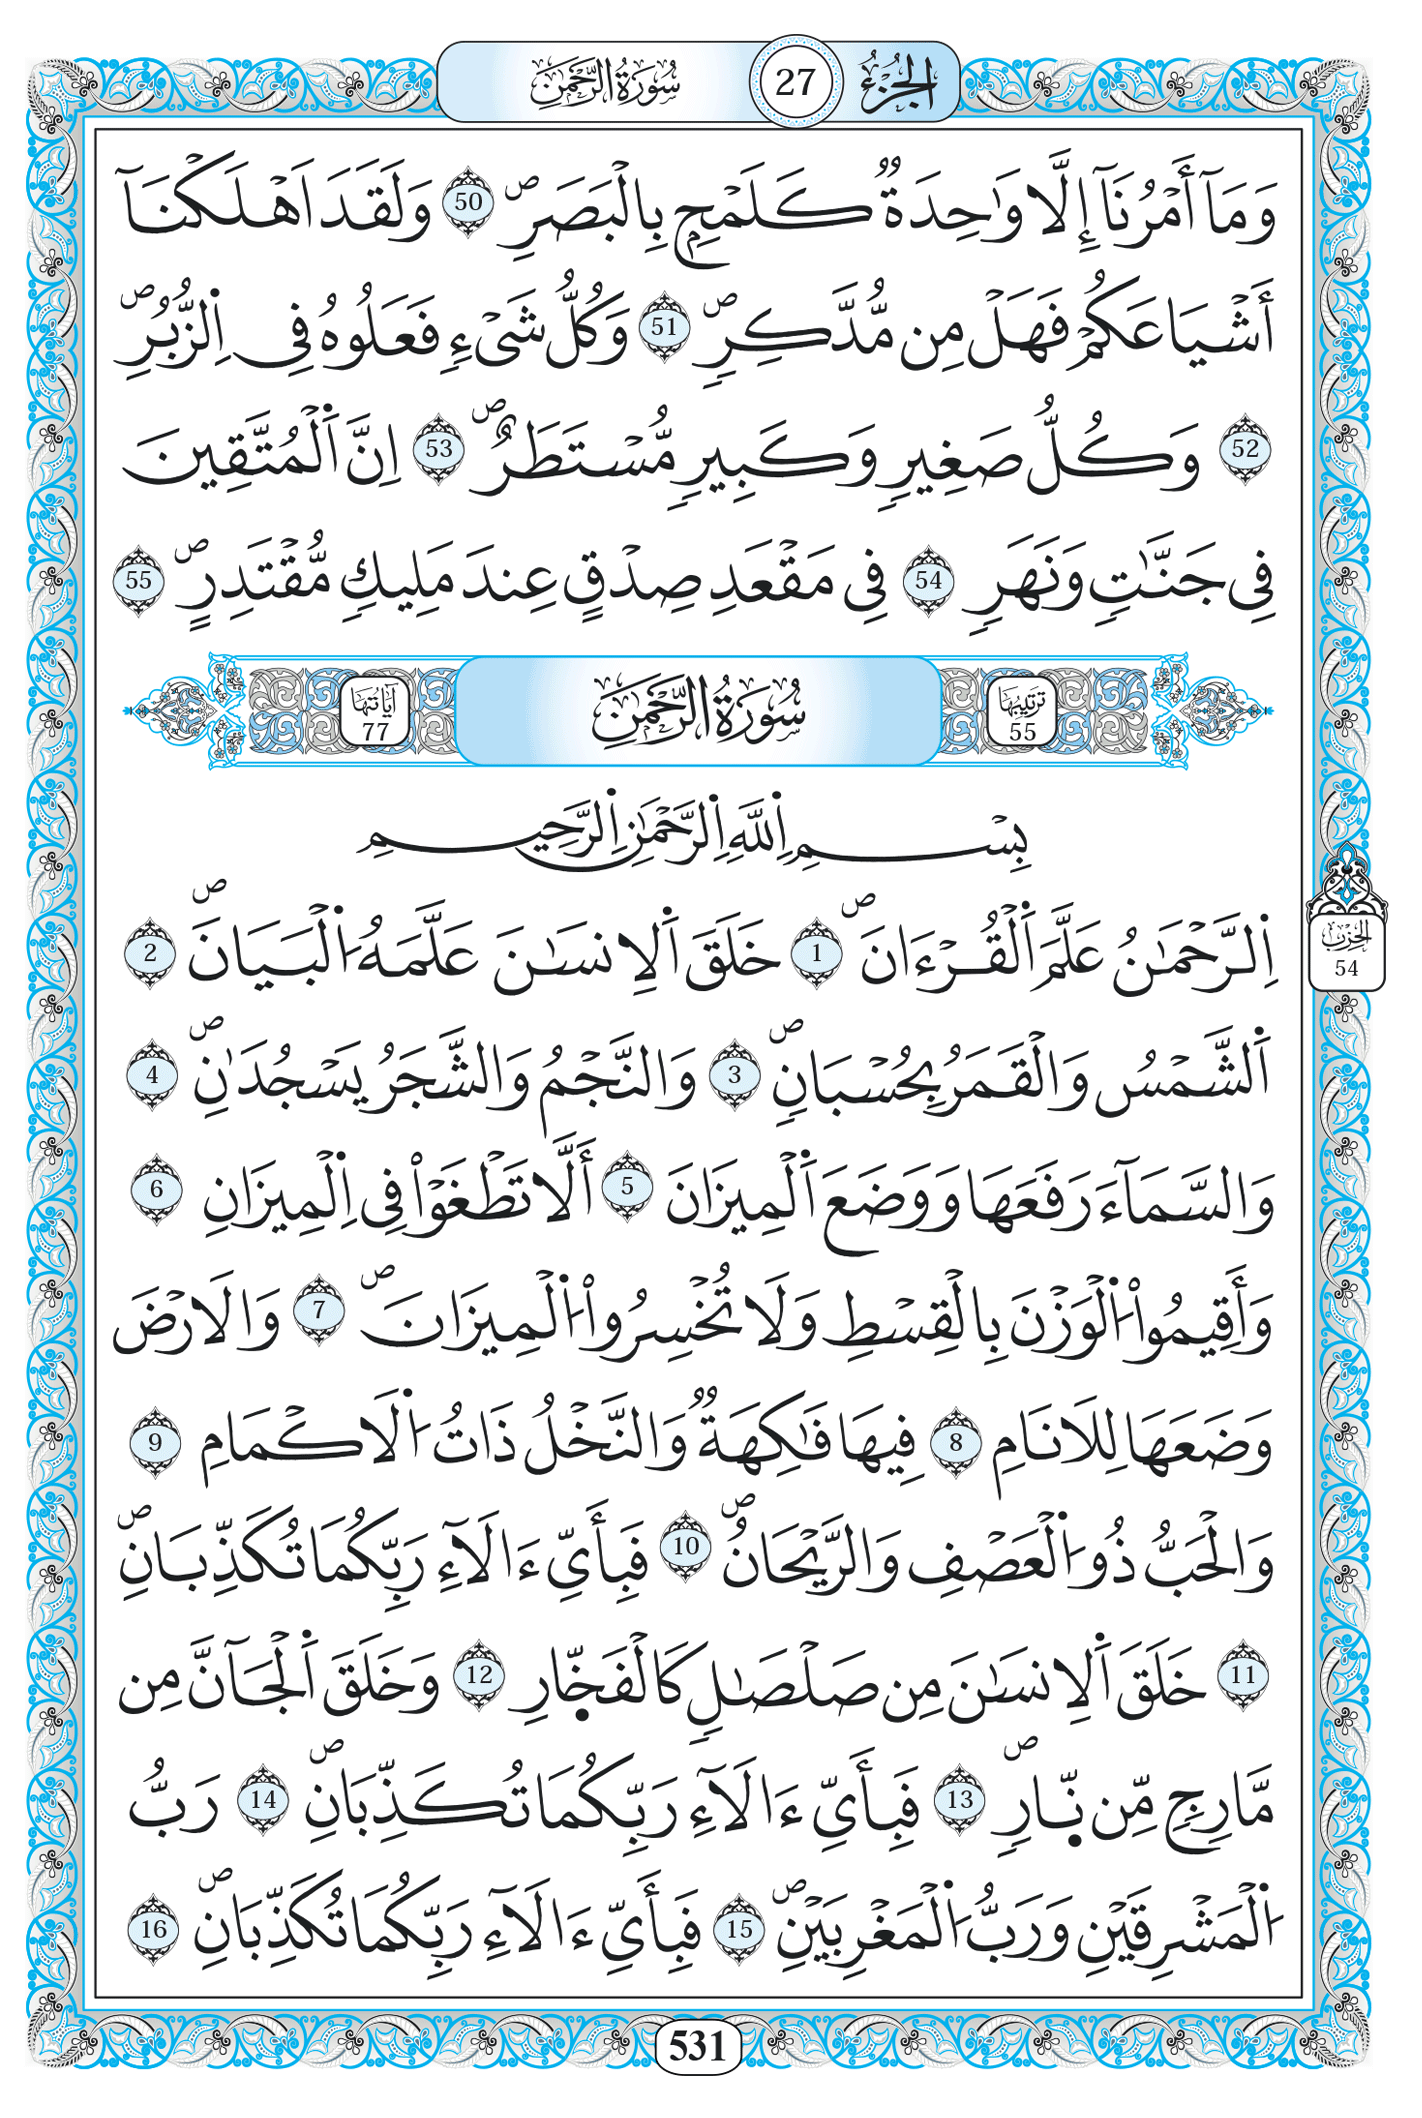 الجزء 27 سورة الرحمن
وَمَآ أَمْرُنَآ إِلَّا وَٰحِدَةٞ كَلَمْحِۢ بِالْبَصَرِۖ 50 وَلَقَدَ اَهْلَكْنَآ
أَشْيَاعَكُمْ فَهَلْ مِن مُّدَّكِرٖۖ 51 وَكُلُّ شَےْءٖ فَعَلُوهُ فِے اِ۬لزُّبُرِۖ
52 وَكُلُّ صَغِيرٖ وَكَبِيرٖ مُّسْتَطَرٌۖ 53 اِنَّ اَ۬لْمُتَّقِينَ
فِے جَنَّٰتٖ وَنَهَرٖ 54 فِے مَقْعَدِ صِدْقٍ عِندَ مَلِيكٖ مُّقْتَدِرٍۖ 55
ترتيبها 55 سورة الرحمن آياتها 77
بِسْمِ اِ۬للَّهِ اِ۬لرَّحْمَٰنِ اِ۬لرَّحِيمِ
اِ۬لرَّحْمَٰنُ عَلَّمَ اَ۬لْقُرْءَانَۖ 1 خَلَقَ اَ۬لِانسَٰنَ عَلَّمَهُ اُ۬لْبَيَانَۖ 2
اَ۬لشَّمْسُ وَالْقَمَرُ بِحُسْبَانٖۖ 3 وَالنَّجْمُ وَالشَّجَرُ يَسْجُدَٰنِۖ 4
وَالسَّمَآءَ رَفَعَهَا وَوَضَعَ اَ۬لْمِيزَانَ 5 أَلَّا تَطْغَوْاْ فِے اِ۬لْمِيزَانِ 6
وَأَقِيمُواْ اُ۬لْوَزْنَ بِالْقِسْطِ وَلَا تُخْسِرُواْ اُ۬لْمِيزَانَۖ 7 وَالَارْضَ
وَضَعَهَا لِلَانَامِ 8 فِيهَا فَٰكِهَةٞ وَالنَّخْلُ ذَاتُ اُ۬لَاكْمَامِ 9
الحزب 54
وَالْحَبُّ ذُو اُ۬لْعَصْفِ وَالرَّيْحَانُۖ 10 فَبِأَيِّ ءَالَآءِ رَبِّكُمَا تُكَذِّبَانِۖ
11 خَلَقَ اَ۬لِانسَٰنَ مِن صَلْصَٰلٖ كَالْفَخّ۪ارِ 12 وَخَلَقَ اَ۬لْجَآنَّ مِن
مَّارِجٖ مِّن نّ۪ارٖۖ 13 فَبِأَيِّ ءَالَآءِ رَبِّكُمَا تُكَذِّبَانِۖ 14 رَبُّ
اُ۬لْمَشْرِقَيْنِ وَرَبُّ اُ۬لْمَغْرِبَيْنِۖ 15 فَبِأَيِّ ءَالَآءِ رَبِّكُمَا تُكَذِّبَانِۖ 16
531